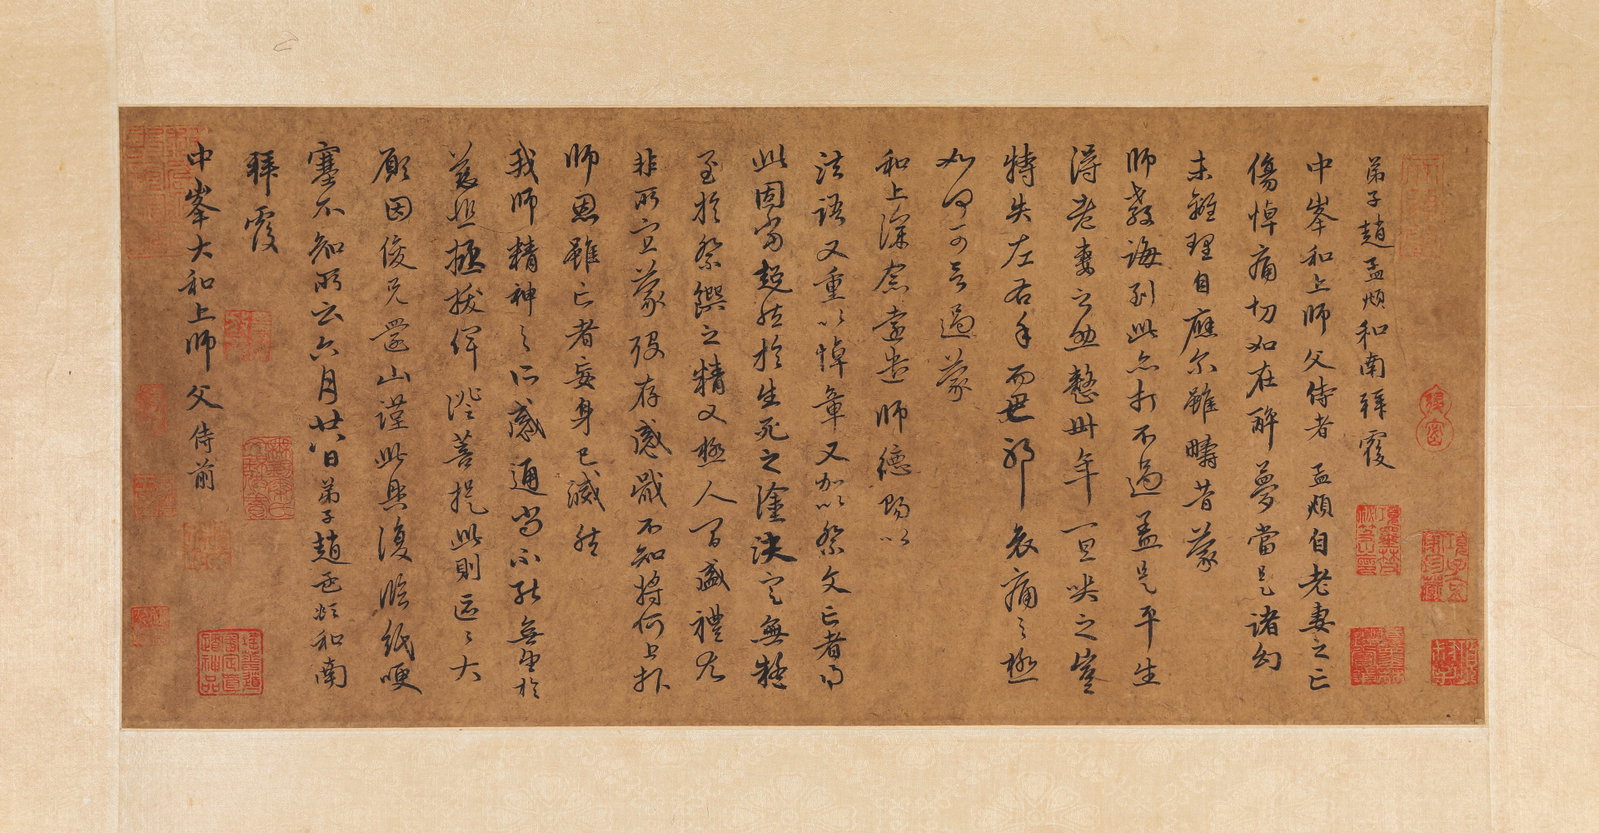 弟子趙孟頫和南拜覆
中峯和上師父侍者孟頫自老妻之亡
傷悼痛切如在醉夢當是諸幻
未離理自應尔雖疇昔蒙
師教誨到此亦打不過盖是平生
得老妻之助整卅年一旦哭之豈
特失左右手而已耶哀痛之極
如何可言過蒙
和上深念遠遣師德賜以
法語又重以悼章又加以祭文亡者得
此固當超然於生死之塗決定無疑
至於祭饌之精又極人間盛禮尤
非所宜蒙歿存感戢不知將何上報
師恩雖亡者妄身已滅然
我師精神之所感通尚不能無望於
慈悲拯拔俾證菩提此則區區大
願因俊兄還山謹此具復臨紙哽
塞不知所云六月廿八日弟子趙孟頫和南
拜覆
中峯大和上師父侍前